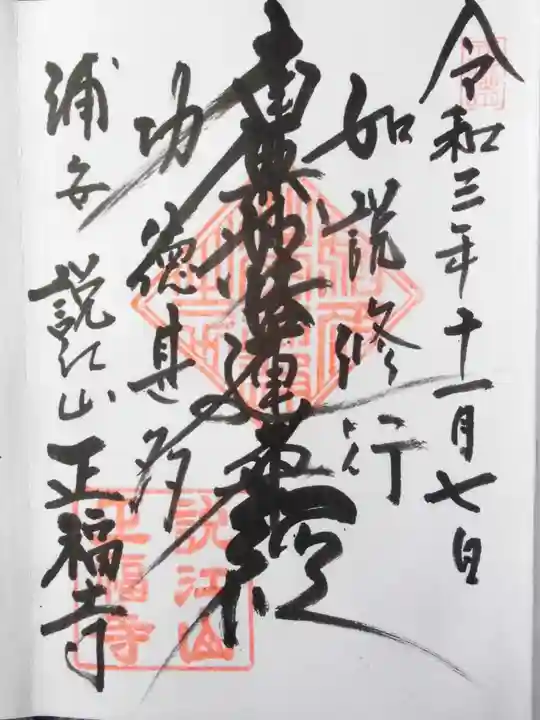 令和三年十一月七日
如説修行
南無妙法蓮華経
功徳甚多
浦安 説江山 正福寺
説江山
正福寺